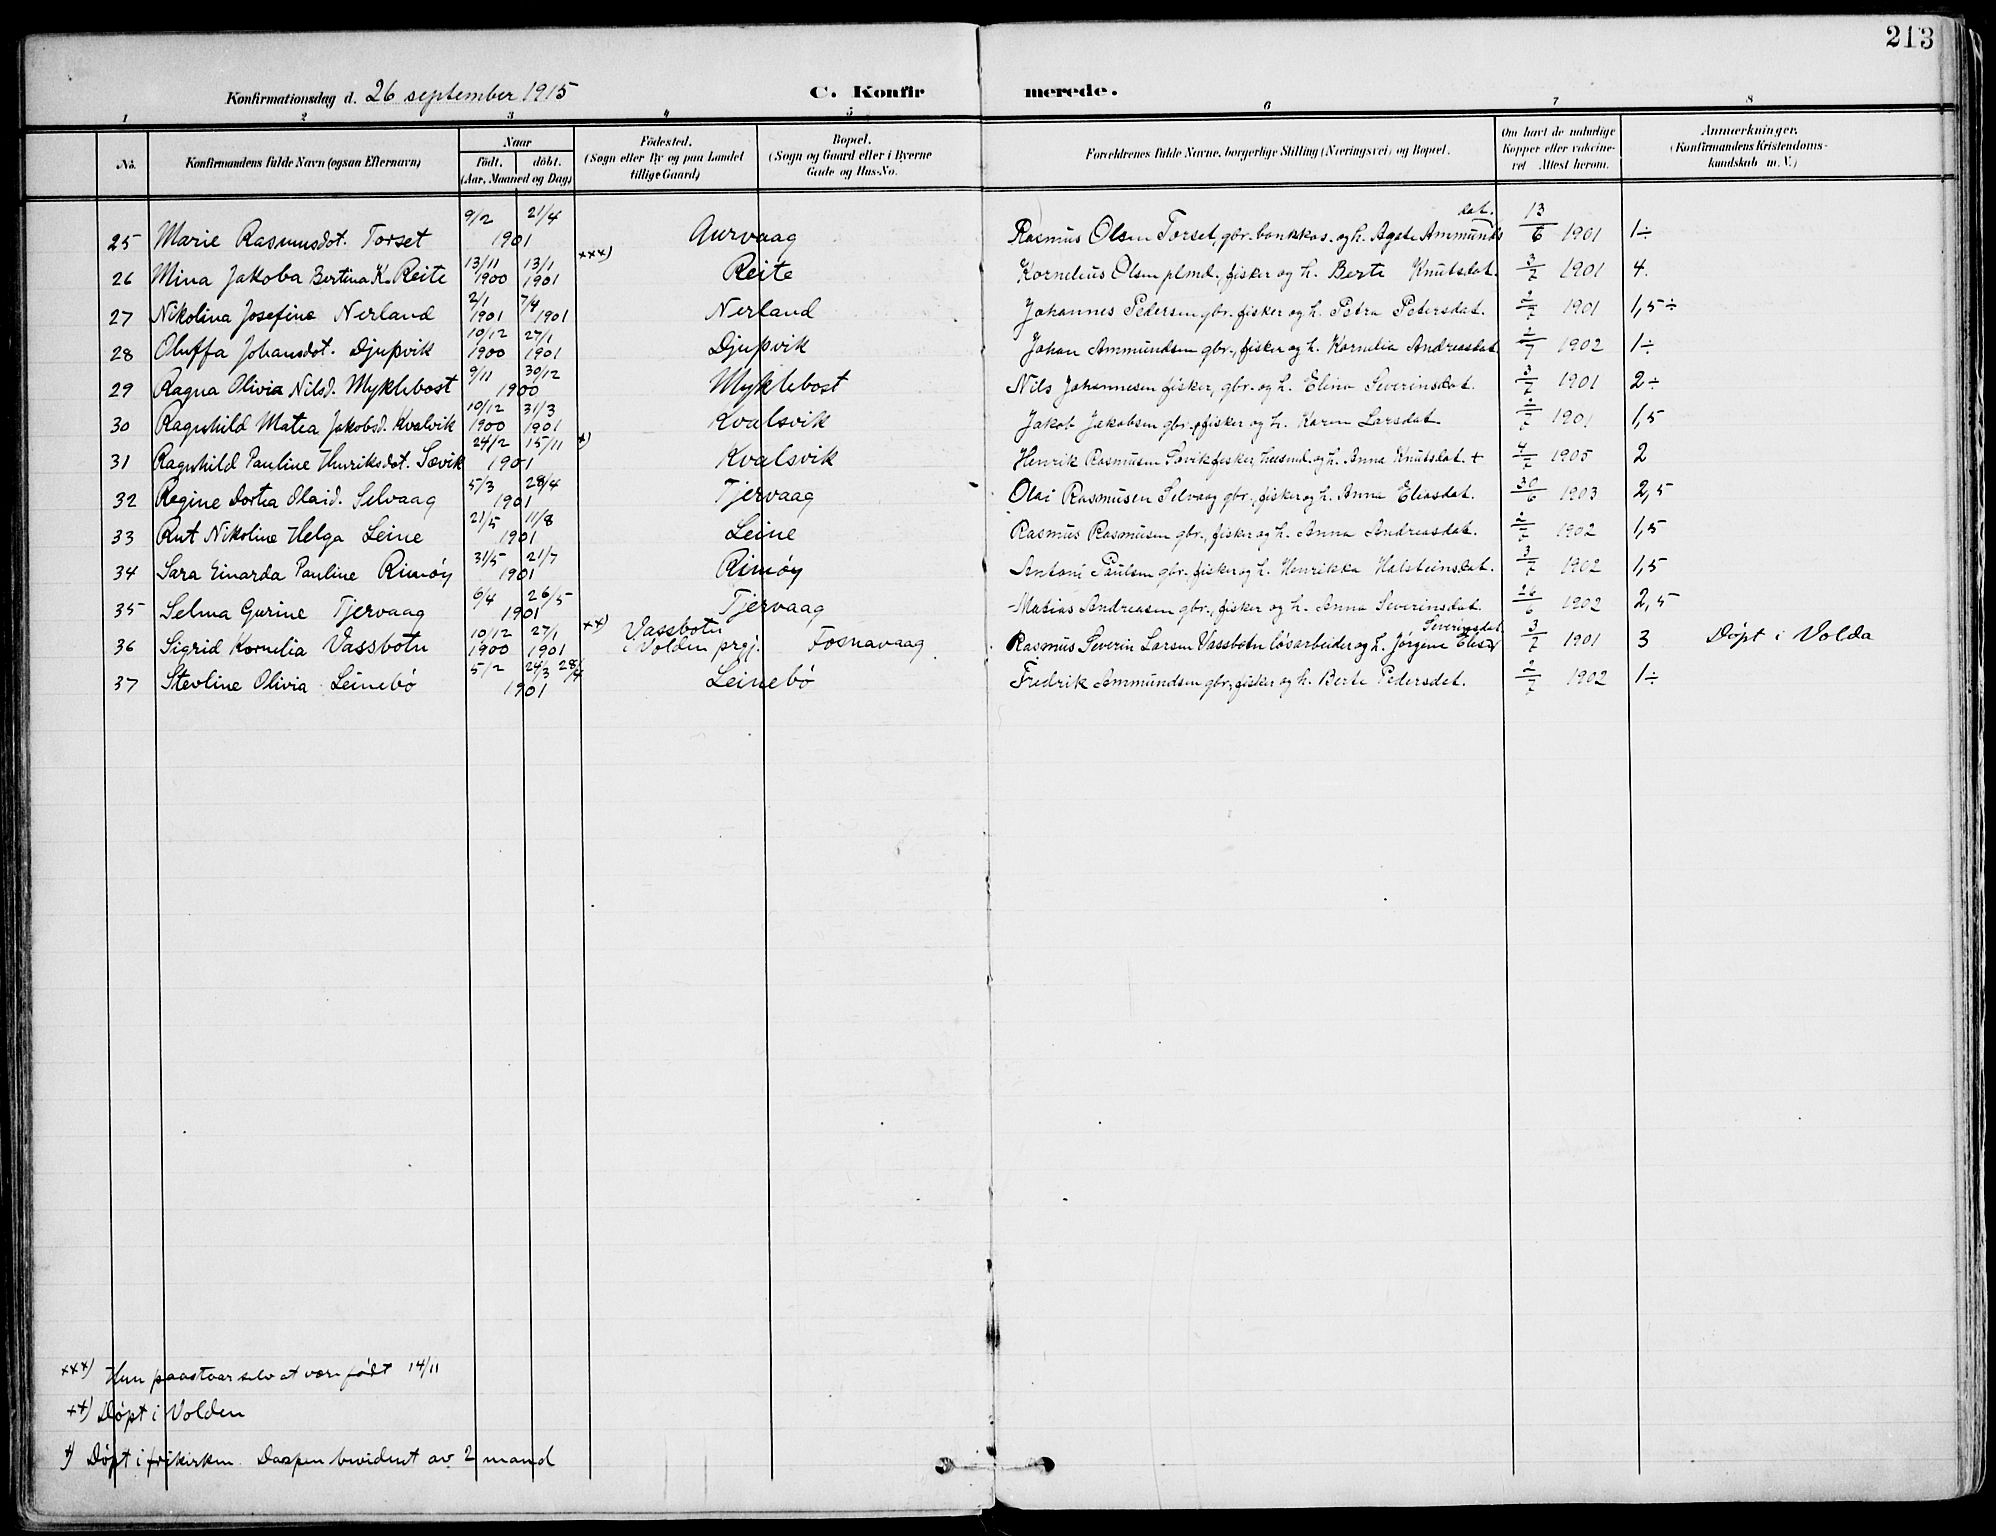 213
Konfirmationsdag d. 26 september 1915 C. Konfirmerede.
1 2 3 4 5 6 7 8
No. Konfirmandens fulde Navn (ogsaa Efternavn) Naar født. døbt. (Aar, Maaned og Dag) Fødested. (Sogn eller By og paa Landet tillige Gaard) Bopæl. (Sogn og Gaard eller i Byerne Gade og Hus-No. Forældrenes fulde Navne, borgerlige Stilling (Næringsvei) og Bopæl. Om havt de naturlige Kopper eller vakcineret Attest herom. Anmærkninger. (Konfirmandens Kristendomskundskab m. V.)
25 Marie Rasmusdot. Torset 9/2 21/4 1901 Aurvaag Rasmus Olsen Torset, gbr. bankkas. og h. Agate Ammundsdat. 13/6 1901 1÷
26 Mina Jakoba Bertina K. Reite 13/11 1900 13/1 1901 xxx) Reite Kornelius Olsen plmd., fisker og h. Berte Knutsdat. 3/7 1901 4.
27 Nikolina Josefine Nerland 2/1 1901 7/4 1901 Nerland Johannes Pedersen gbr. fisker og h. Petra Petersdat. 2/7 1901 1,5÷
28 Oluffa Johansdot. Djupvik 10/12 1900 27/1 1901 Djupvik Johan Ammundsen gbr., fisker og h. Kornelia Andreasdat. 2/7 1902 1÷
29 Ragna Olivia Nilsd. Myklebost 9/11 30/12 1900 Myklebost Nils Johannesen fisker, gbr. og h. Elina Severinsdat. 3/7 1901 2÷
30 Ragnhild Matea Jakobsd. Kvalvik 10/12 1900 31/3 1901 Kvalsvik Jakob Jakobsen gbr., fisker og h. Karen Larsdat. 2/7 1901 1,5
31 Ragnhild Pauline Henriksdot. Sævik 24/2 15/11 1901 x) Kvalsvik Henrik Rasmusen Sævik fisker, husmd. og h. Anna Knutsdat. + 4/7 1905 2
32 Regine Dortea Olaid. Selvaag 5/3 28/4 1901 Tjervaag Olai Rasmusen Selvaag gbr., fisker og h. Anna Eliasdat. 30/6 1903 2,5
33 Rut Nikoline Helga Leine 21/5 11/8 1901 Leine Rasmus Rasmusen gbr., fisker og h. Anna Andreasdat. 2/7 1902 1,5
34 Sara Einarda Pauline Rimøy 31/5 21/7 1901 Rimøy Antoni Paulsen gbr., fisker og h. Henrikka Halsteinsdat. 3/7 1902 1,5
35 Selma Gurine Tjervaag 6/4 26/5 1901 Tjervaag Matias Andreasen gbr., fisker og h. Anna Severinsdat. 26/6 1902 2,5
36 Sigrid Kornelia Vassbotn 10/12 1900 27/1 1901 xx) Vassbotn i Volden prgj. Fosnavaag Rasmus Severin Larsen Vassbotn løsarbeider og h. Jørgine Elise Severinsdat. 3/7 1901 3 Døpt i Volda
37 Stevline Olivia Leinebø 5/2 24/3 28/4 1901 Leinebø Fredrik Ammundsen gbr., fisker og h. Berte Pedersdat. 2/7 1902 1÷
xxx) Hun paastaar selv at være født 14/11
xx) Døpt i Volden
x) Døpt i frikirken. Daapen bevidnet av 2 mænd